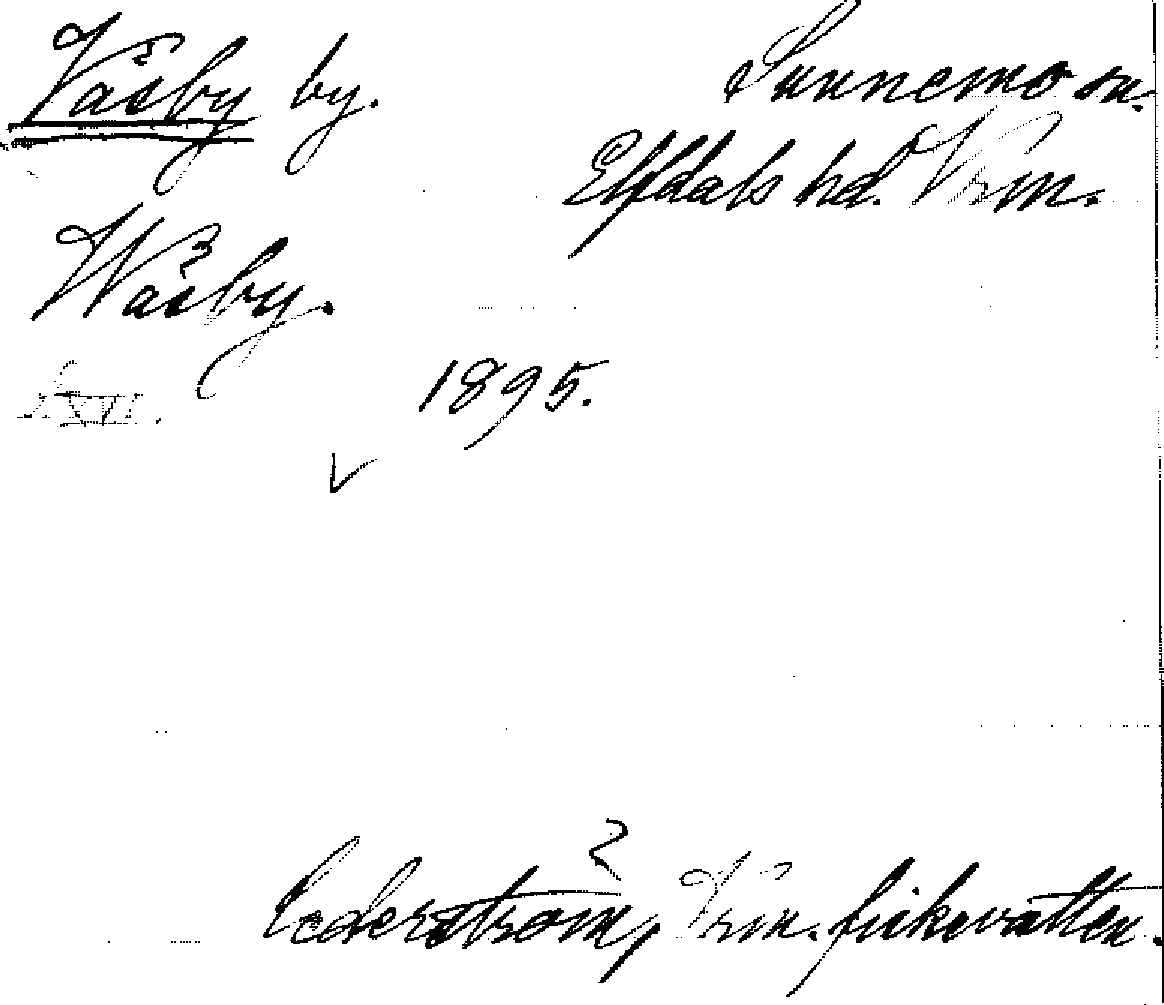 Väsby by. Sunnemo sn.
Elfdals hd. Vrm.
Wäsby.
1895.
Cederström, Vrm. fiskevatten.